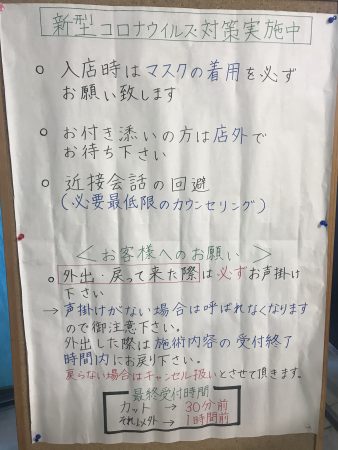 新型コロナウイルス対策実施中
○ 入店時はマスクの着用を必ず
お願い致します
○ お付き添いの方は店外で
お待ち下さい
○ 近接会話の回避
(必要最低限のカウンセリング)
＜お客様へのお願い＞
○ 外出・戻って来た際は必ずお声掛け
下さい
→ 声掛けがない場合は呼ばれなくなります
ので御注意下さい。
外出した際は施術内容の受付終了
時間内にお戻り下さい。
戻らない場合はキャンセル扱いとさせて頂きます。
最終受付時間
カット → 30分前
それ以外 → 1時間前